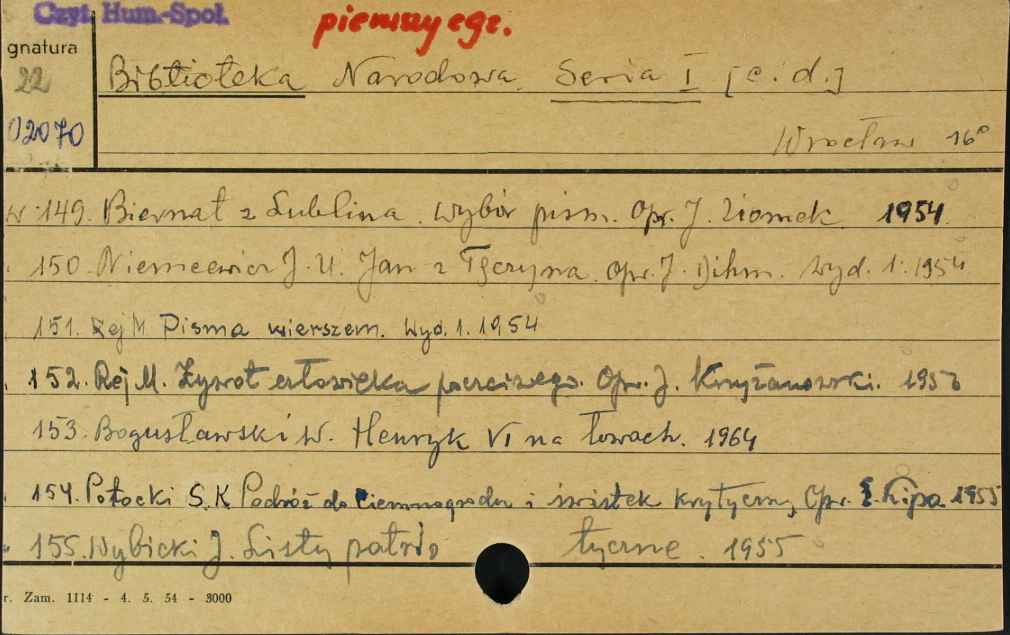 Czyt. Hum.-Społ.
pierwszy egz.
gnatura
22
Biblioteka Narodowa. Seria I [c.d.]
02070
Wrocław 16°
w. 149. Biernat z Lublina. Wybór pism. Opr. J. Ziomek. 1954
150. Niemcewicz J. U. Jan z Tęczyna. Opr. J. Dihm. Wyd. 1. 1954
151. Rej M. Pisma wierszem. Wyd. 1. 1954
152. Rej M. Żywot człowieka poczciwego. Opr. J. Krzyżanowski.
153. Bogusławski W. Henryk VI na łowach. 1964
154. Potocki S. K. Podróż do Ciemnogrodu i świstek krytyczny. Opr. E. Kipa 1955
155. Wybicki J. Listy patrio tyczne. 1955
r. Zam. 1114 - 4. 5. 54 - 3000